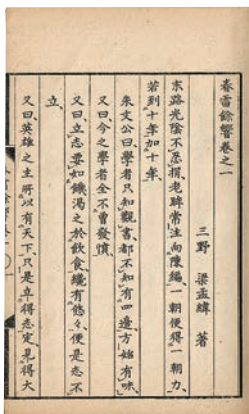 春雷餘響卷之一
三野 梁孟緯 著
末路光陰不忍捐老眸常注向陳編一朝便得一朝力
若到十年加十年
朱文公曰學者只知觀書都不知有四邊方始有味
又曰今之學者全不曾發憤
又曰立志要如饑渴之於飲食纔有悠々便是志不
立
又曰英雄之主所以有天下只是立得志定見得大